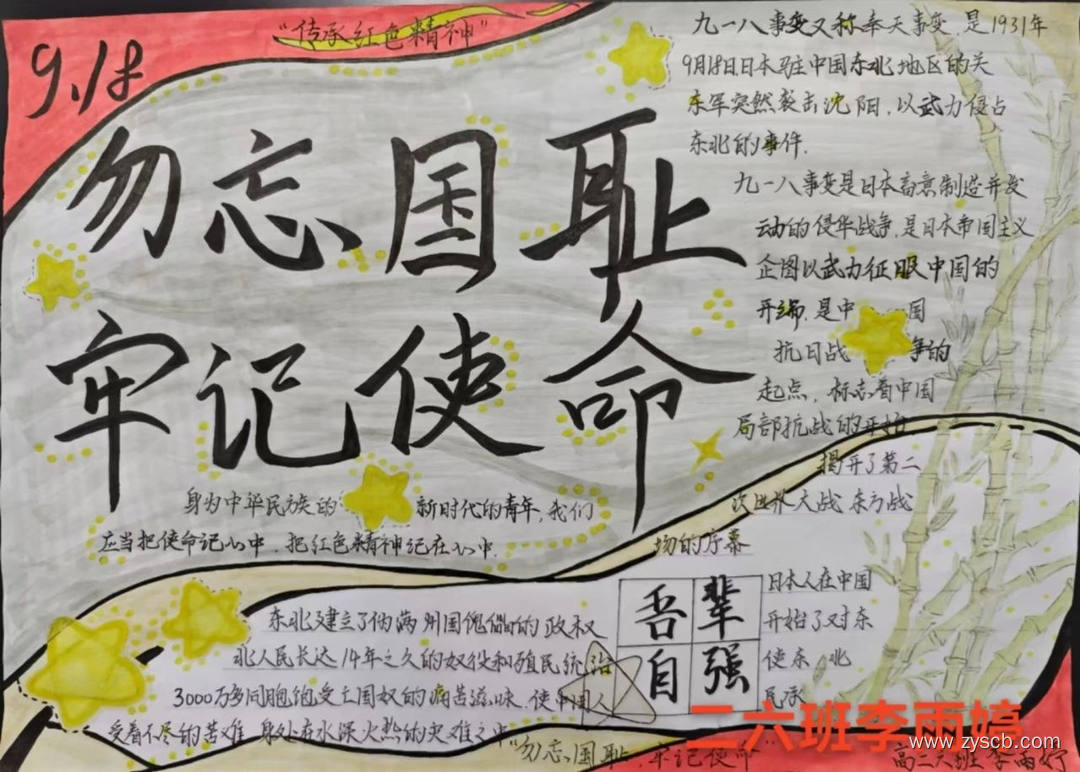 "传承红色精神"
9.18
勿忘国耻
牢记使命
九一八事变又称奉天事变,是1931年
9月18日日本驻中国东北地区的关
东军突然袭击沈阳,以武力侵占
东北的事件.
九一八事变是日本蓄意制造并发
动的侵华战争,是日本帝国主义
企图以武力征服中国的
开端,是中国
抗日战争的
起点,标志着中国
局部抗战的开始
揭开了第二
次世界大战东方战
场的序幕
身为中华民族的新时代的青年,我们
应当把使命记心中,把红色精神记在心中.
日本人在中国
东北建立了伪满州国傀儡的政权
开始了对东
北人民长达14年之久的奴役和殖民统治
使东北
3000万多同胞饱受亡国奴的痛苦滋味,使中国人
民承
受着不尽的苦难 身处在水深火热的灾难之中
吾辈
自强
"勿忘国耻,牢记使命"
二六班李雨婷
高二六班 李雨婷
www.zyscb.com